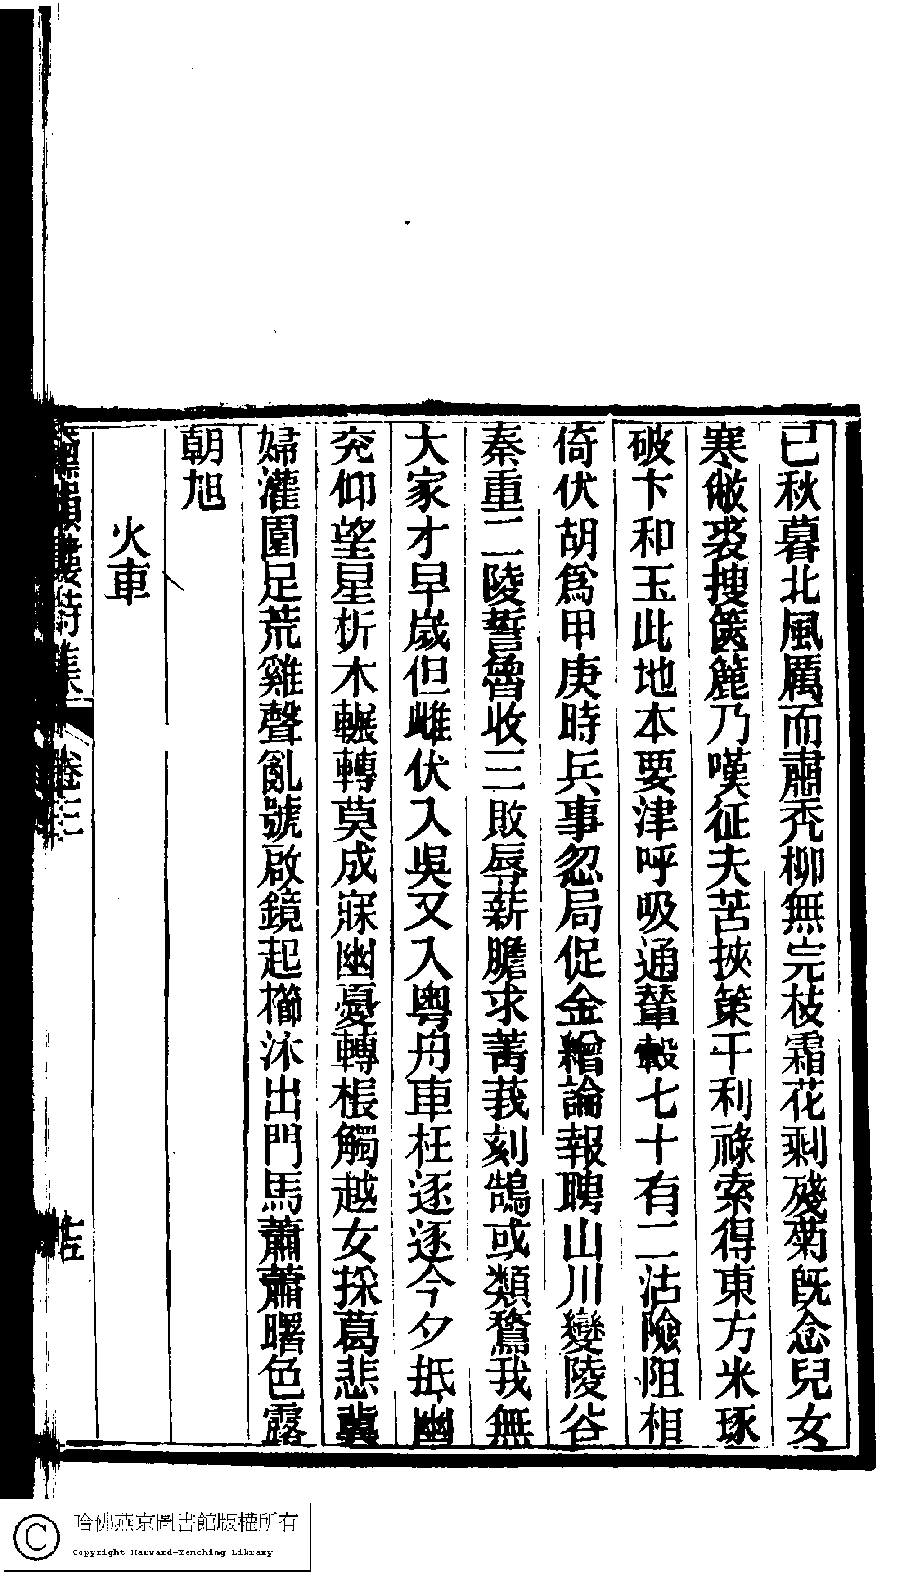 已秋暮北風厲而肅禿柳無完枝霜花剩殘菊旣念兒女
寒敝裘搜篋簏乃嘆征夫苦挾策干利祿索得東方米琢
破卞和玉此地本要津呼吸通輦轂七十有二沽險阻相
倚伏胡爲甲庚時兵事忽局促金繒論報聘山川變陵谷
秦重二陵誓魯收三敗辱薪膽求蓍莪刻鵠或類鶩我無
大家才早歲但雌伏入吳又入粵舟車枉逐逐今夕抵幽
兖仰望星析木輾轉莫成寐幽憂轉棖觸越女採葛悲冀
婦灌園足荒雞聲亂號啟鏡起櫛沐出門馬蕭蕭曙色露
朝旭
火車
詩集 卷三
哈佛燕京圖書館版權所有
Copyright Harvard-Yenching Library